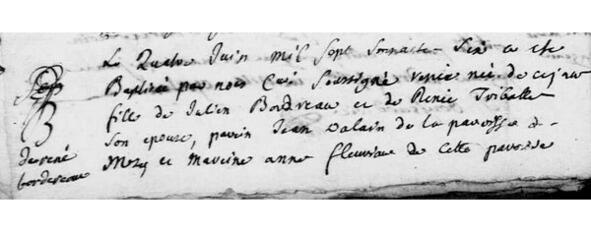 Le Quatre Juin mil sept soixante six a ete
Baptisée par nous Curé Soussigné renée née de ce jour
B
fille de Julien Bordereau et de Renée Triballe
Son epouse, parein Jean valain de la paroisse de
derené
bordereau
et Mareine anne fleuriau de Cette paroisse